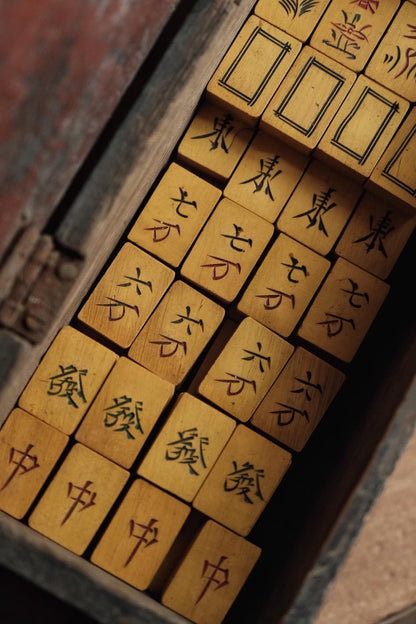 東 東 東 東
七 七 七 七
万 万 万 万
六 六 六 六
万 万 万 万
發 發 發 發
中 中 中 中